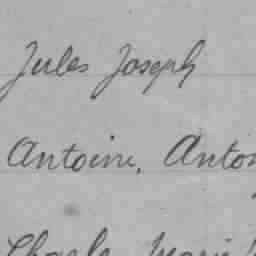 Jules Joseph
Antoine, Anton
Charle Marie